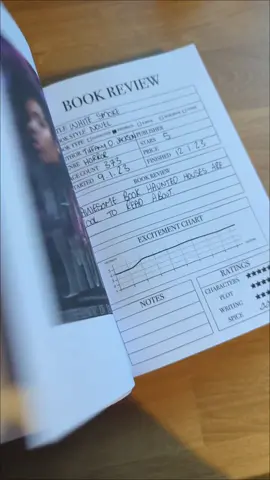 BOOK REVIEW
TITLE WHITE SMOKE
BOOK STYLE NOVEL
BOOK TYPE
AUTHOR TIFFANY D. JACKSON PUBLISHER
GENRE HORROR STARS 5
PAGE COUNT 373 PRICE
STARTED 9.1.23 FINISHED 12.1.23
BOOK REVIEW
AWESOME BOOK HAUNTED HOUSES ARE
COOL TO READ ABOUT
EXCITEMENT CHART
NOTES
RATINGS
CHARACTERS
PLOT
WRITING
SPICE